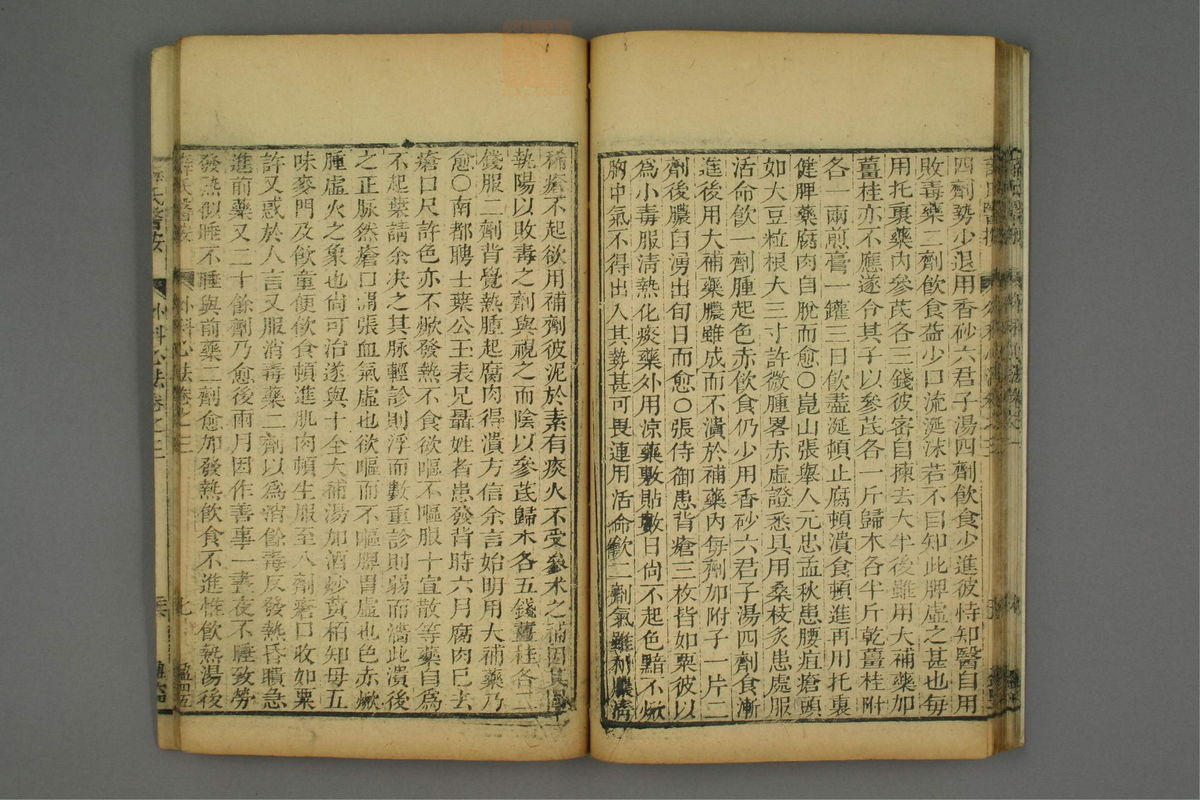 四劑勢少退用香砂六君子湯四劑飲食少進彼恃知醫自用
敗毒藥二劑飲食益少口流涎沫若不自知此脾虛之甚也每
用托裏藥內參芪各三錢彼密自揀去大半後雖用大補藥加
薑桂亦不應遂合其子以參芪各一斤歸朮各半斤乾薑桂附
各一兩煎膏一罐三日飲盡涎頓止腐頓潰食頓進再用托裏
健脾藥腐肉自脫而愈○崑山張舉人元忠孟秋患腰疽瘡頭
如大豆粒根大三寸許微腫畧赤虛證悉具用桑枝炙患處服
活命飲一劑腫起色赤飲食仍少用香砂六君子湯四劑食漸
進後用大補藥膿雖成而不潰於補藥內每劑加附子一片二
劑後膿自湧出旬日而愈○張侍御患背瘡三枚皆如粟彼以
為小毒服清熱化痰藥外用涼藥敷貼數日尚不起色黯不焮
胸中氣不得出入其勢甚可畏連用活命飲二劑氣雖利膿清
稀瘡不起欲用補劑彼泥於素有痰火不受參朮之補因其
執陽以敗毒之劑與視之而陰以參芪歸朮各五錢薑桂各二
錢服二劑背覺熱腫起腐肉得潰方信余言始明用大補藥乃
愈○南都聘士葉公玉表兄聶姓者患發背時六月腐肉已去
瘡口尺許色亦不焮發熱不食欲嘔不嘔服十宣散等藥自為
不起葉請余决之其脉輕診則浮而數重診則弱而濇此潰後
之正脉然瘡口開張血氣虛也欲嘔而不嘔脾胃虛也色赤焮
腫虛火之象也尚可治遂與十全大補湯加酒炒黃栢知母五
味麥門及飲童便飲食頓進肌肉頓生服至八劑瘡口收如粟
許又惑於人言又服消毒藥二劑以為消餘毒反發熱昏瞶急
進前藥又二十餘劑乃愈後兩月因作善事一晝夜不睡致勞
發熱似睡不睡與前藥二劑愈加發熱飲食不進惟飲熱湯後
薛氏醫按
外科心法卷之三